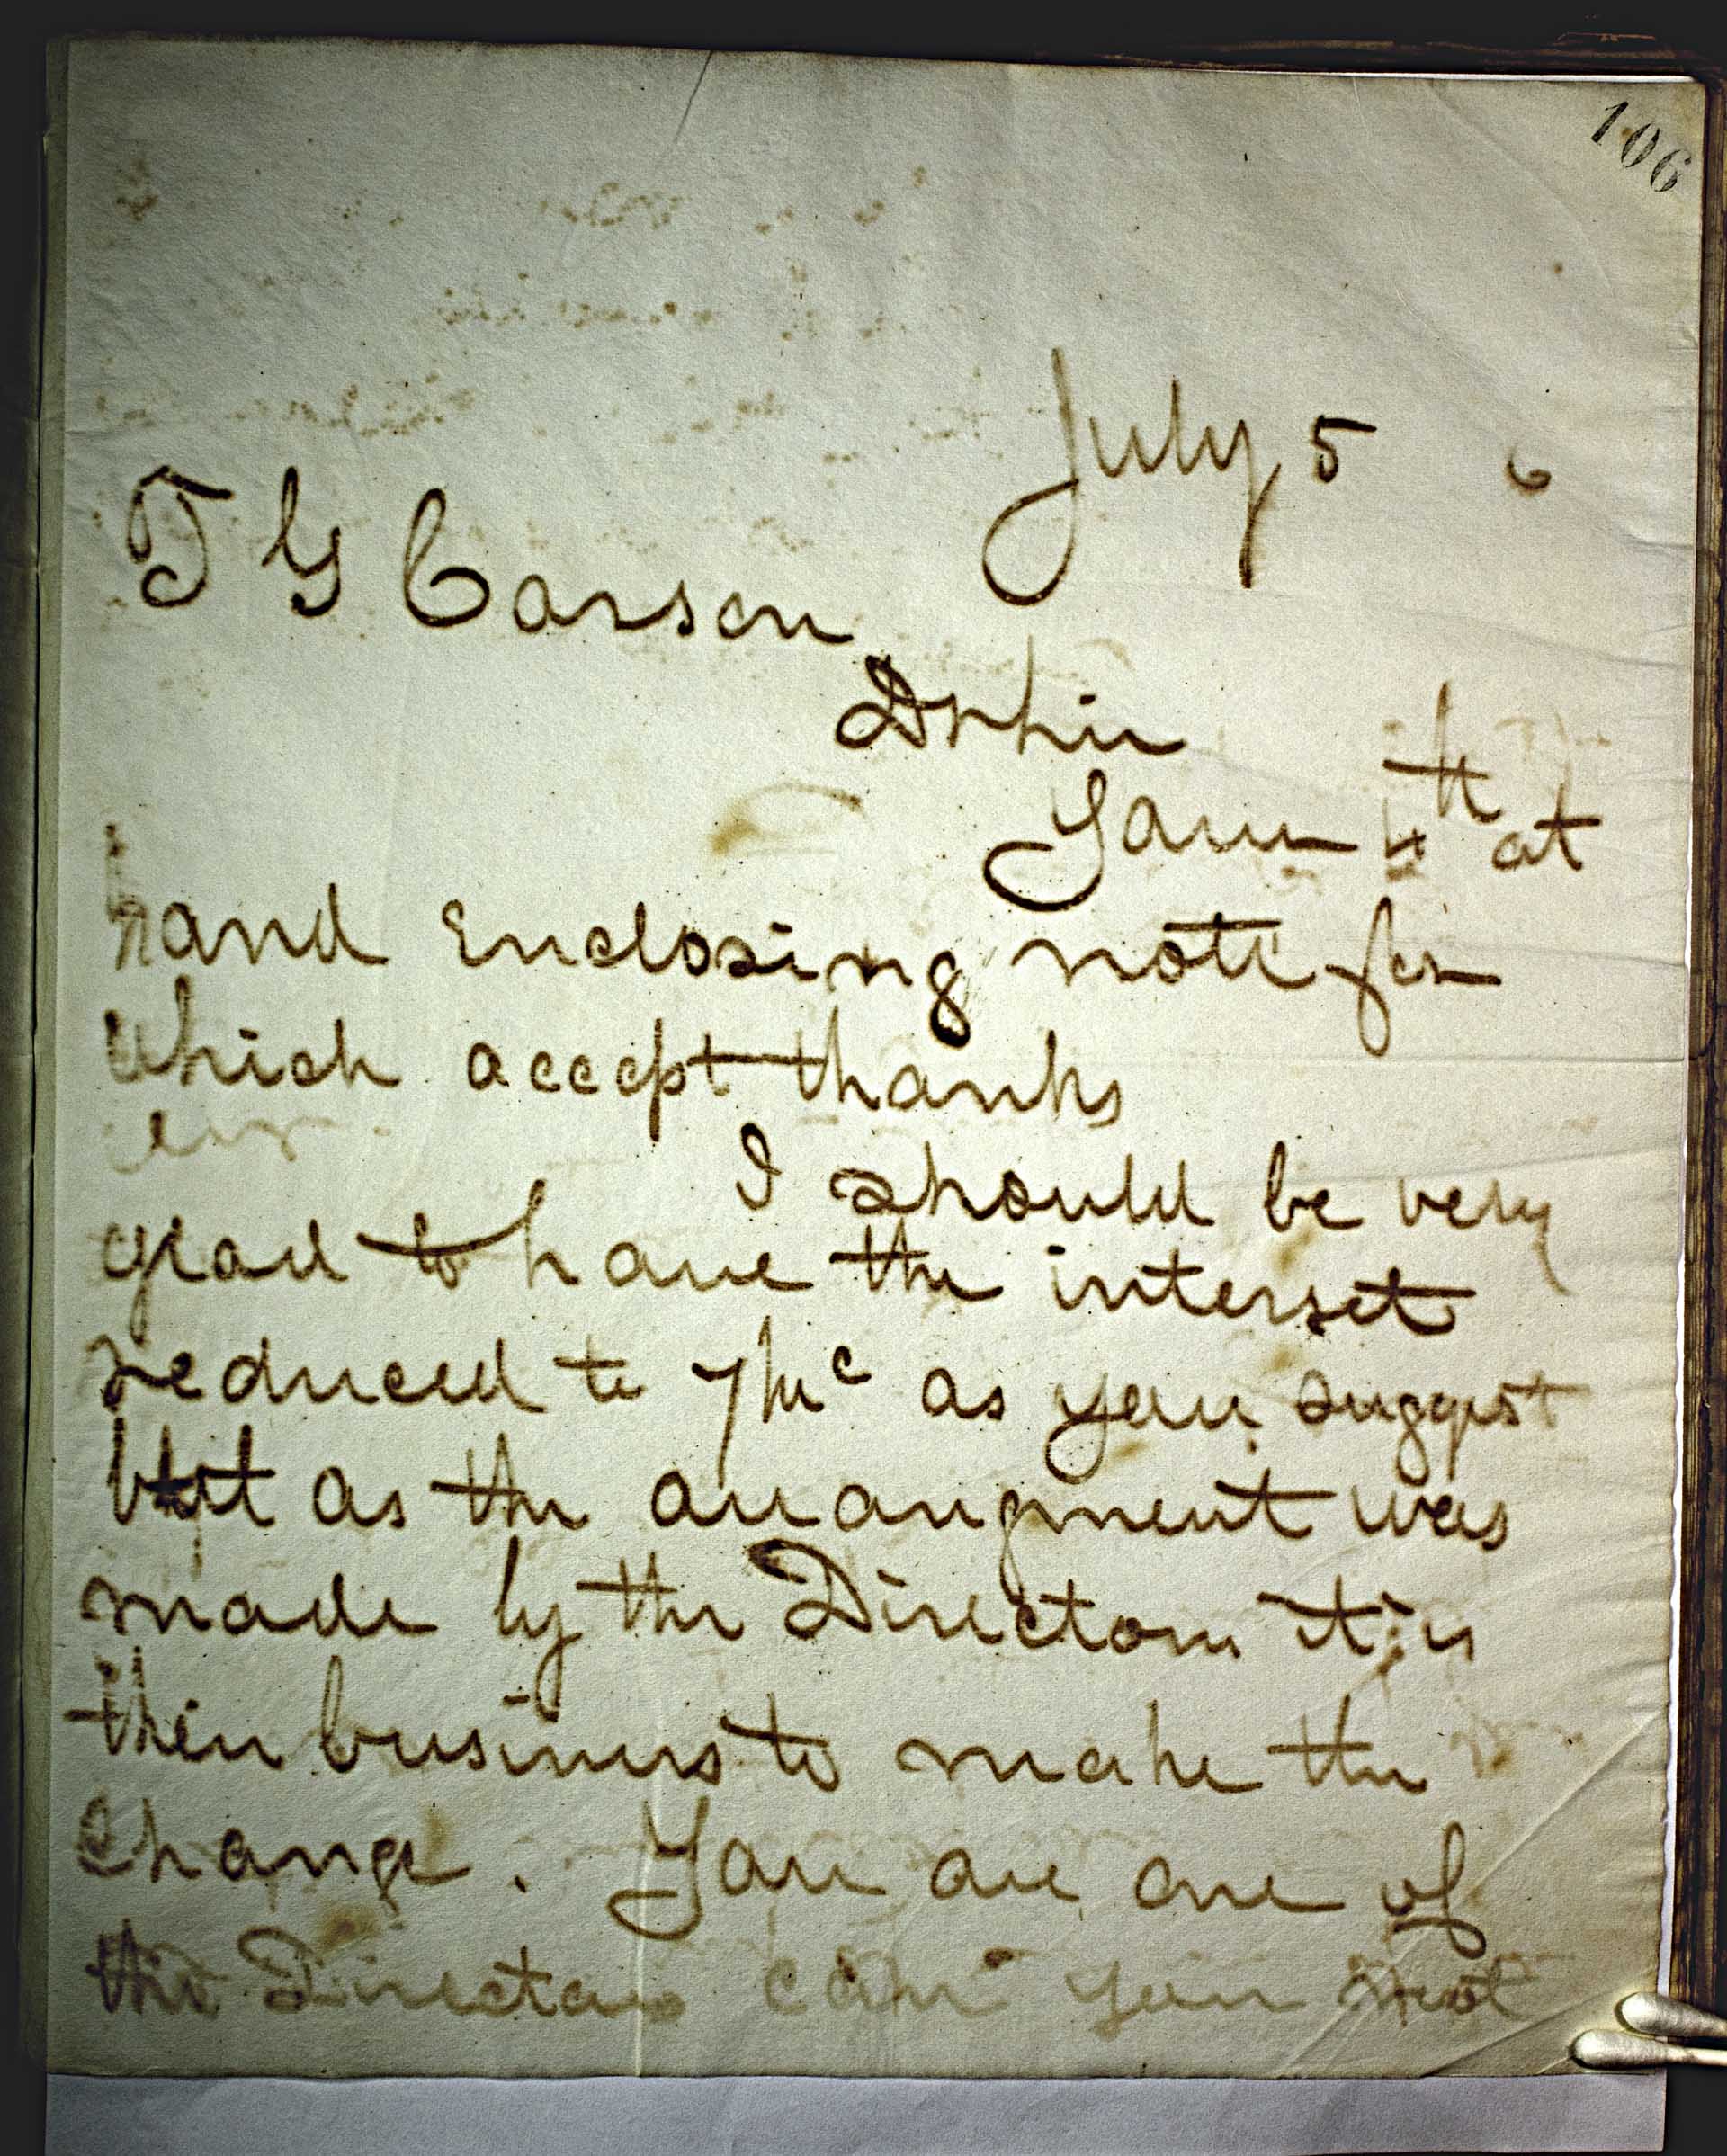 106
July 5 6
T G Carson
Dr Sir
Yours 4th at
hand enclosing note for
which accept thanks
I should be very
glad to have the interset
reduced to as you suggest
but as the arrangment was
made by the Directors it is
their business to make the
change. You are one of
the Directors can you not